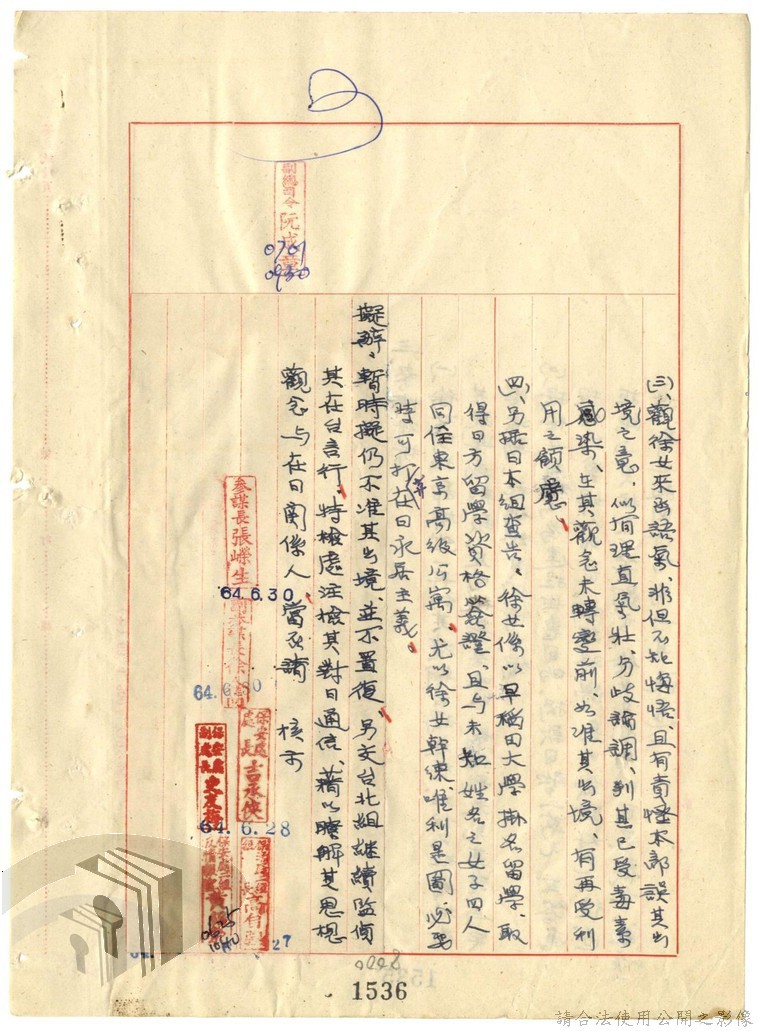 ㈢、觀徐女來函語氣、非但不知悔悟、且有責怪本部誤其出
境之意、似有理直氣壯、分歧論調、判其已受毒素
感染、在其觀念未轉變前、如准其出境、有再受利
用之顧慮。
㈣、另据日本組查告、徐女係以早稻田大學掛名留學、取
得日方留學資格簽證、且与未知姓名之女子四人
同住東京高級公寓、尤以徐女幹練、唯利是圖、必要
時可打 在日永居主義。
擬辦、暫時擬仍不准其出境、並不置復、另交台北組継續監偵
其在台言行、特檢處注檢其對日通信、藉以瞭解其思想
觀念与在日關係人、當否請 核示
副總司令 阮成章
0701
0930
參謀長 張嶸生
64.6.30
副參謀長徐
64.6.30
保安處處長 吉承俠
64.6.28
保安處副處長
27
1040
64.
1536
請合法使用公開之影像